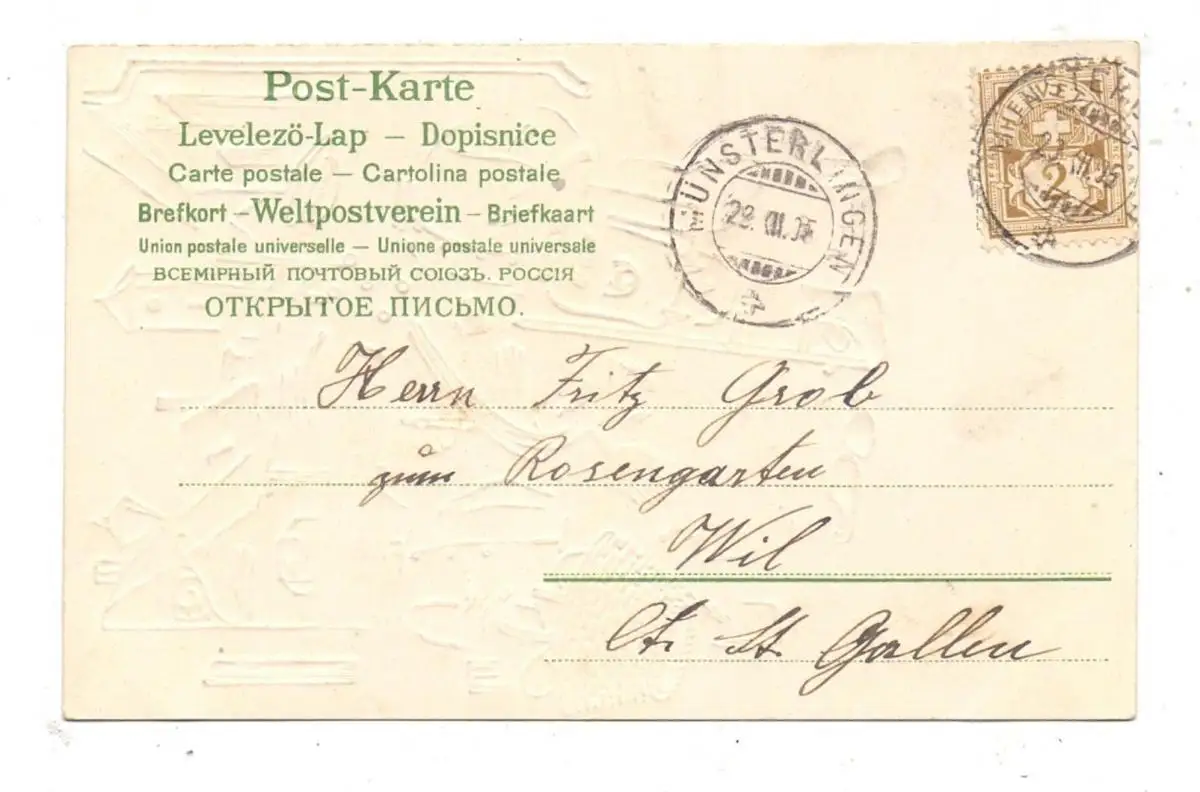 Post-Karte
Levelezö-Lap – Dopisnice
Carte postale – Cartolina postale
Brefkort – Weltpostverein – Briefkaart
Union postale universelle – Unione postale universale
ВСЕМІРНЫЙ ПОЧТОВЫЙ СОЮЗЪ. РОССІЯ
ОТКРЫТОЕ ПИСЬМО.
MÜNSTERLINGEN
2
Herrn Fritz Grob
zum Rosengarten
Wil
Ct. St. Gallen